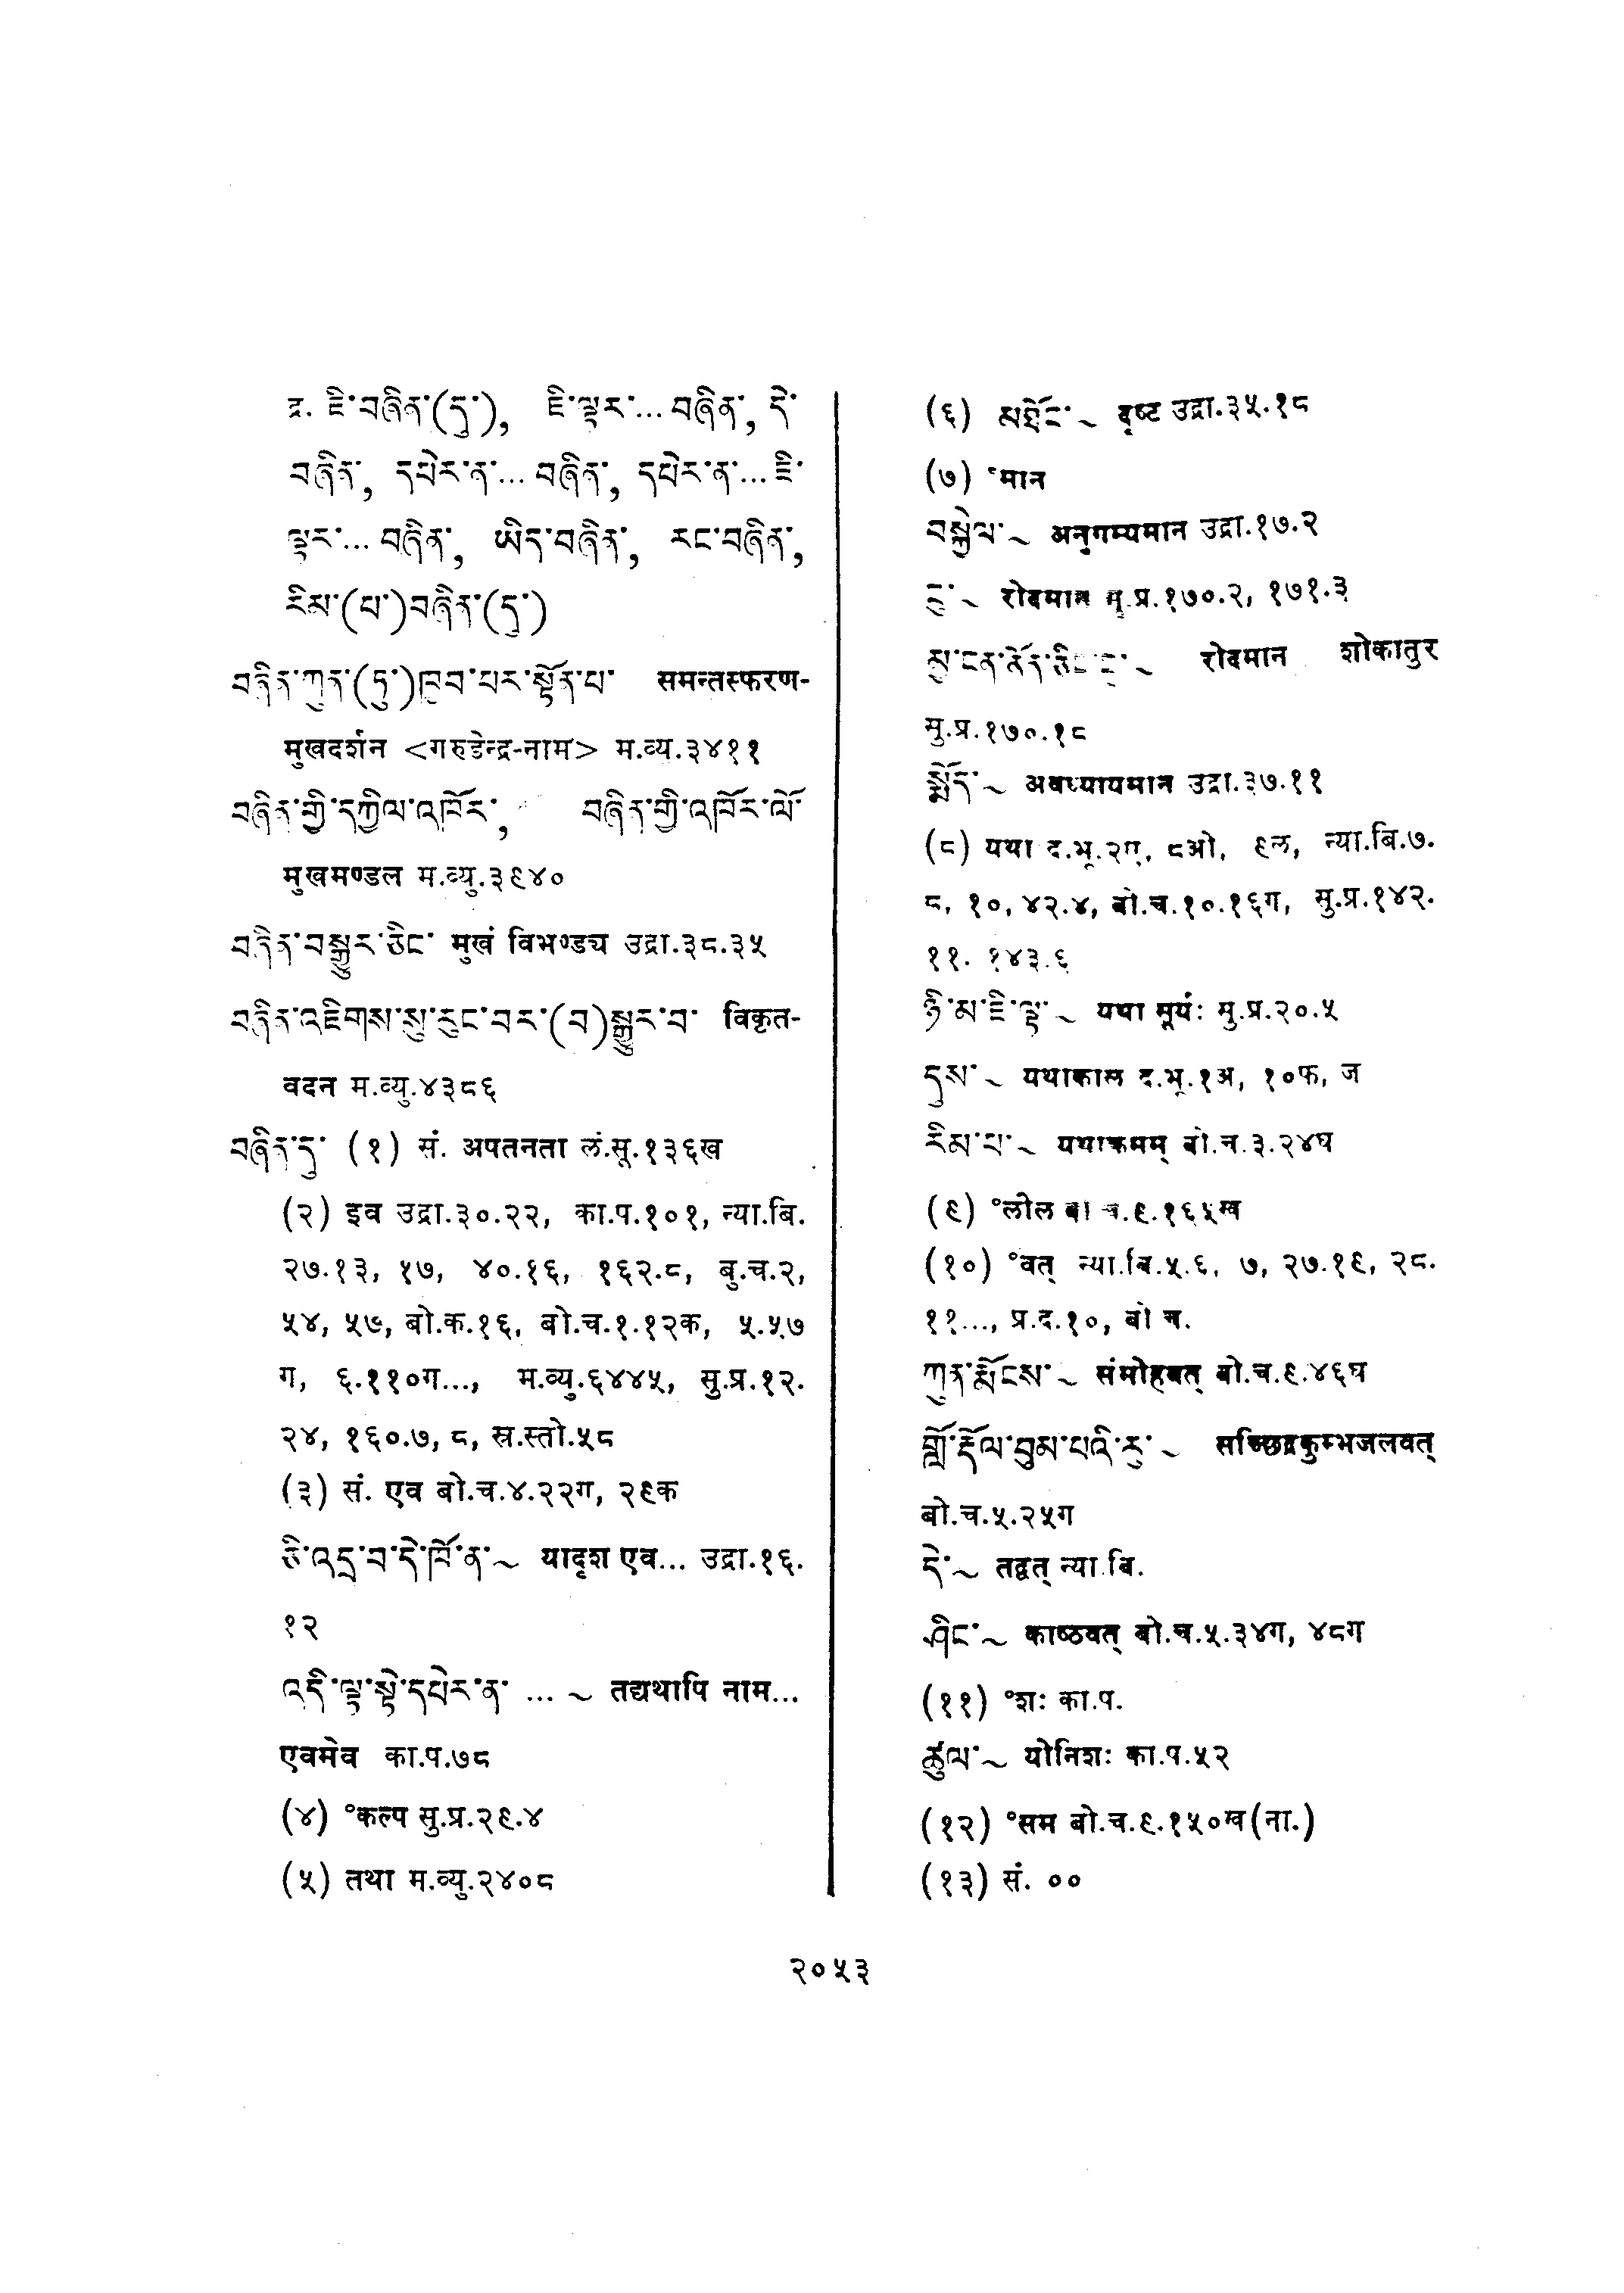 द्र. ཇི་བཞིན་(དུ་), ཇི་ལྟར་... བཞིན་, དེ་
བཞིན་, དཔེར་ན་... བཞིན་, དཔེར་ན་... ཇི་
ལྟར་... བཞིན་, ཡིད་བཞིན་, རང་བཞིན་,
རིམ་(པ་)བཞིན་(དུ་)
བཞིན་ཀུན་(ཏུ་)ཁྱབ་པར་སྟོན་པ་ समन्तस्फरण-
मुखदर्शन <गरुडेन्द्र-नाम> म.व्य.३४११
བཞིན་གྱི་དཀྱིལ་འཁོར་, བཞིན་གྱི་འཁོར་ལོ་
मुखमण्डल म.व्यु.३९४०
བཞིན་བསྒྱུར་ཅིང་ मुखं विभण्ड्य उद्रा.३८.३५
བཞིན་འཇིགས་སུ་རུང་བར་(བ)སྒྱུར་བ་ विकृत-
वदन म.व्यु.४३८६
བཞིན་དུ་ (१) सं. अपतनता लं.सू.१३६ख
(२) इव उद्रा.३०.२२, का.प.१०१, न्या.बि.
२७.१३, १७, ४०.१६, १६२.८, बु.च.२,
५४, ५७, बो.क.१६, बो.च.१.१२क, ५.५७
ग, ६.११०ग..., म.व्यु.६४४५, सु.प्र.१२.
२४, १६०.७, ८, स्र.स्तो.५८
(३) सं. एव बो.च.४.२२ग, २९क
ཅི་འདྲ་བ་དེ་ཁོ་ན་~ यादृश एव... उद्रा.१६.
१२
འདི་ལྟ་སྟེ་དཔེར་ན་ ... ~ तद्यथापि नाम...
एवमेव का.प.७८
(४) °कल्प सु.प्र.२९.४
(५) तथा म.व्यु.२४०८
(६) མཐོང་~ दृष्ट उद्रा.३५.१८
(७) °मान
བསྐྱེལ་~ अनुगम्यमान उद्रा.१७.२
ངུ་~ रोदमान सु.प्र.१७०.२, १७१.३
མྱ་ངན་ ~ रोदमान शोकातुर
सु.प्र.१७०.१८
སྨོད་~ अवध्यायमान उद्रा.३७.११
(८) यथा द.भू.२ण, ८ओ, ९ल, न्या.बि.७.
८, १०, ४२.४, बो.च.१०.१६ग, सु.प्र.१४२.
११. १४३.६
ཉི་མ་ཇི་ལྟ་~ यथा सूर्यः सु.प्र.२०.५
དུས་~ यथाकाल द.भू.१अ, १०फ, ज
རིམ་པ་~ यथाक्रमम् बो.च.३.२४घ
(९) °लील बो.च.९.१६५ख
(१०) °वत् न्या.बि.५.६, ७, २७.१९, २८.
११..., प्र.द.१०, बो च.
ཀུན་རྨོངས་~ संमोहवत् बो.च.९.४६घ
གློ་རྡོལ་བུམ་པའི་ཆུ་~ सच्छिद्रकुम्भजलवत्
बो.च.५.२५ग
དེ་~ तद्वत् न्या.बि.
ཤིང་~ काष्ठवत् बो.च.५.३४ग, ४८ग
(११) °शः का.प.
ཚུལ་~ योनिशः का.प.५२
(१२) °सम बो.च.९.१५०ख(ना.)
(१३) सं. ००
२०५३